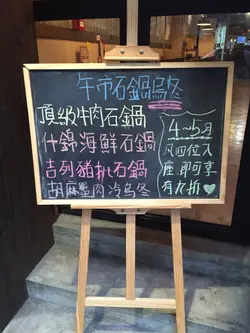 午市石鍋烏冬
頂級牛肉石鍋
什錦海鮮石鍋
吉列豬扒石鍋
胡麻蟹肉冷烏冬
4~5月
凡四位入
座即可享
有九折